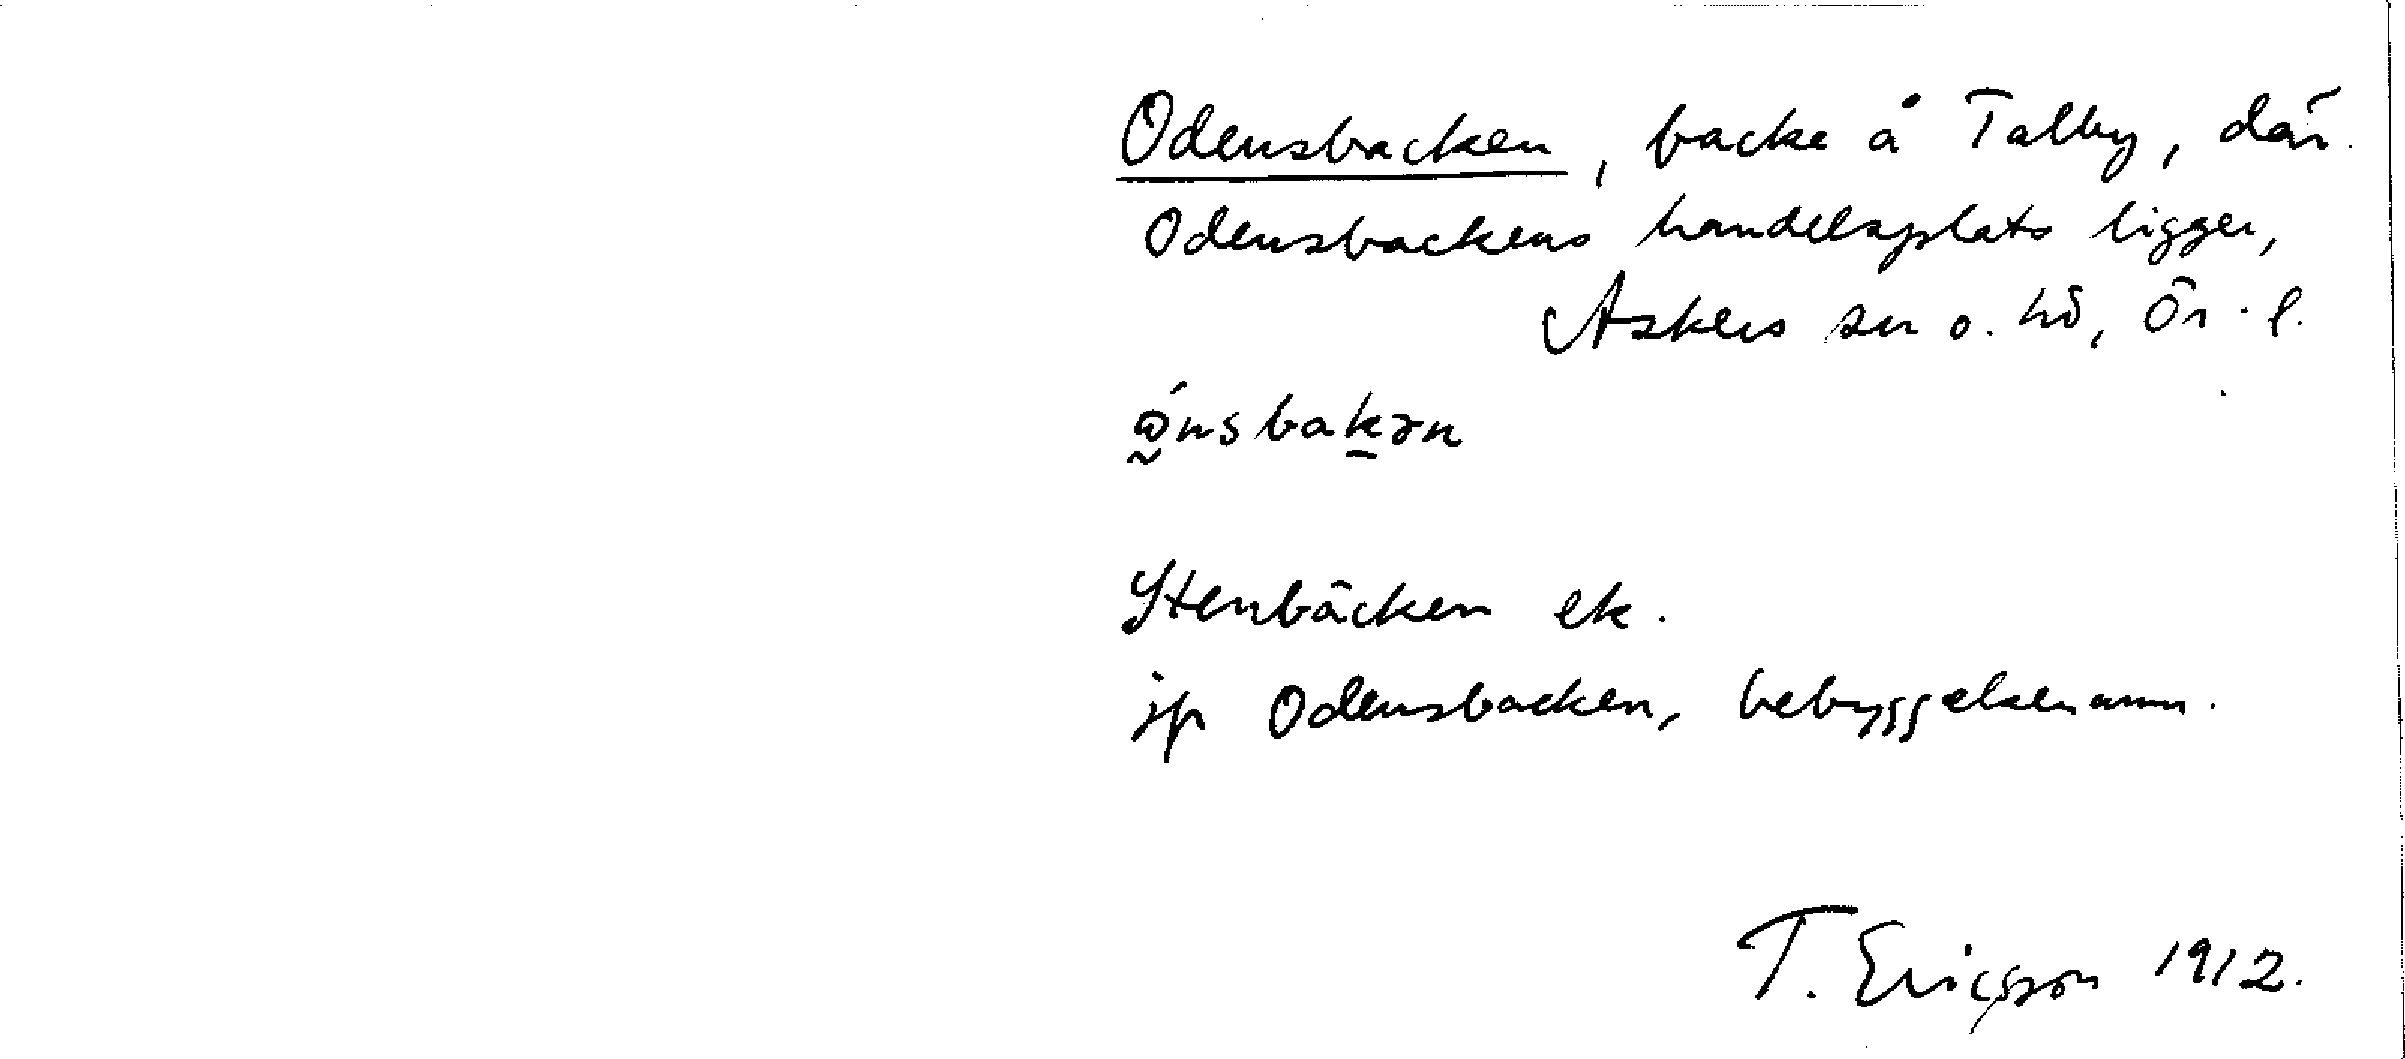 Odensbacken, backe å Talby, där
Odensbackens handelsplats ligger,
Askers sn o. hd, Ör. l.
ώnsbakən
Stenbäcken ek.
jfr Odensbacken, bebyggelsenamn.
T. Ericsson 1912.